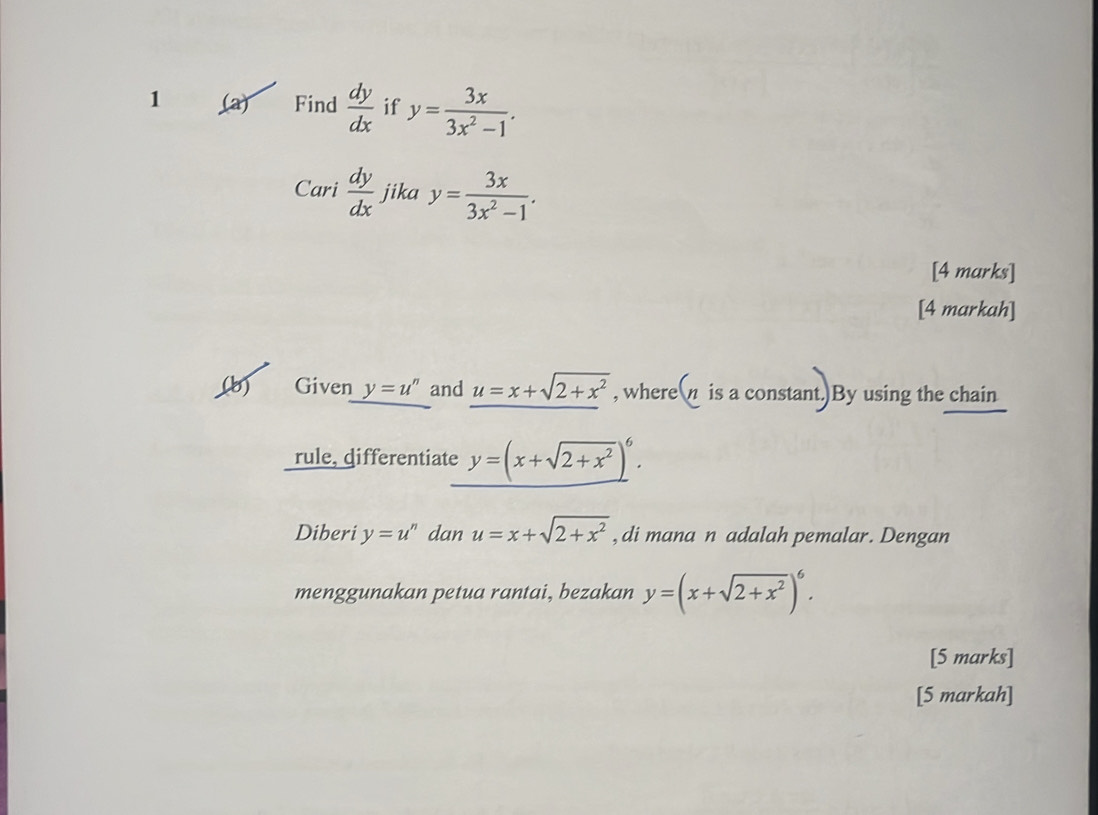 1 (a) Find dy/dx if y = 3x/(3x² − 1).
Cari dy/dx jika y = 3x/(3x² − 1).
[4 marks]
[4 markah]
(b) Given y = uⁿ and u = x + √(2 + x²), where n is a constant. By using the chain
rule, differentiate y = (x + √(2 + x²))⁶.
Diberi y = uⁿ dan u = x + √(2 + x²), di mana n adalah pemalar. Dengan
menggunakan petua rantai, bezakan y = (x + √(2 + x²))⁶.
[5 marks]
[5 markah]